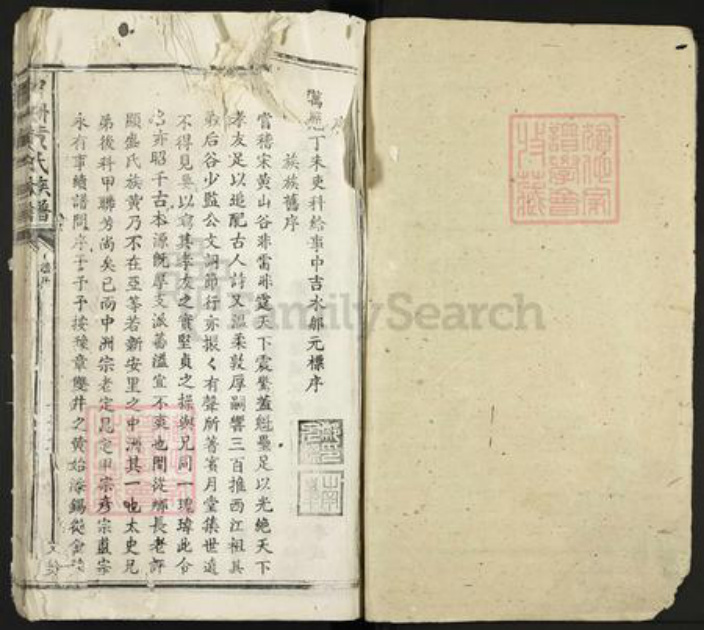 序
萬曆丁未吏科給事中吉水鄒元標序
族舊序
嘗稽宋黃山谷非雷非霆天下震驚蓋魁壘足以光絶天下
孝友足以追配古人詩又溫柔敦厚嗣響三百推西江祖其
弟后谷少監公文詞節行亦振々有聲所著賓月堂集世遠
不得見無以寫其孝友之實堅貞之操與兄同一瑰瑋此合
亦昭千古本源既厚支派蕃溢宜不爽也間從鄉長老評
顯盛氏族黃乃不在亞等若新安里之中洲其一也太史兄
弟後科甲聯芳尚矣已而中洲宗老定甲宗彥宗
永有事續譜問序于予予按豫章雙井之黃始添錫從金
氏族譜
FamilySearch